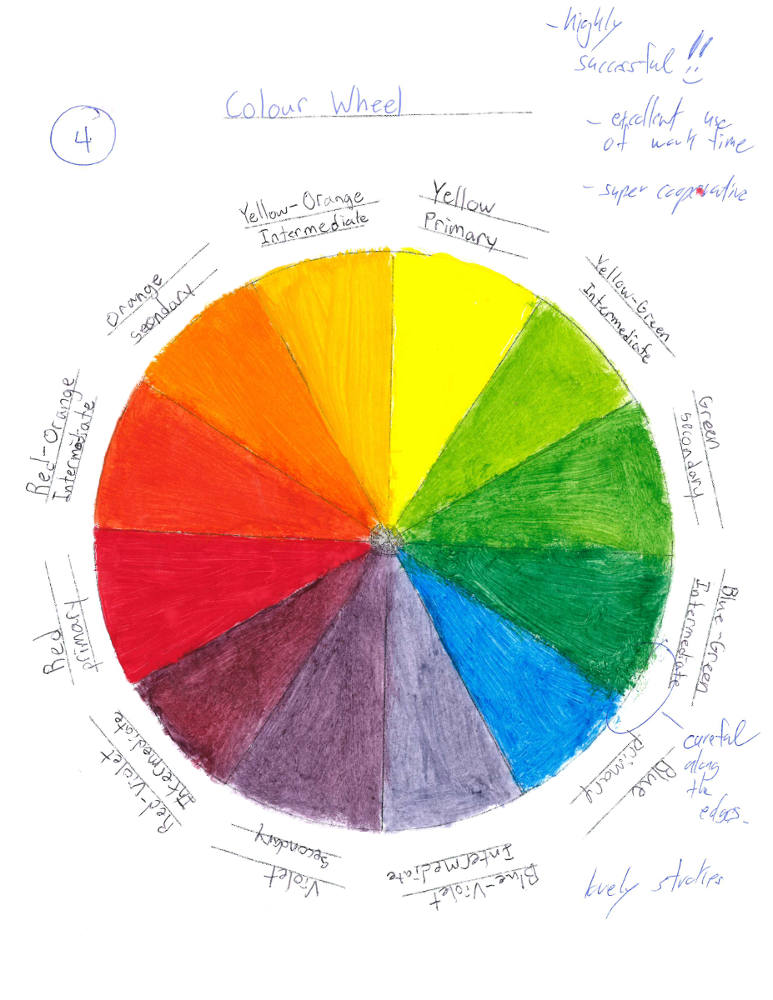 - highly
successful!!
Colour Wheel
4
- excellent use
of work time
- super cooperative
Yellow-Orange
Intermediate
Yellow
Primary
Yellow-Green
Intermediate
Green
secondary
Blue-Green
Intermediate
Blue
primary
Blue-Violet
Intermediate
Violet
Secondary
Red-Violet
Intermediate
Red
primary
Red-Orange
Intermediate
Orange
secondary
careful
along
the
edges.
lovely strokes